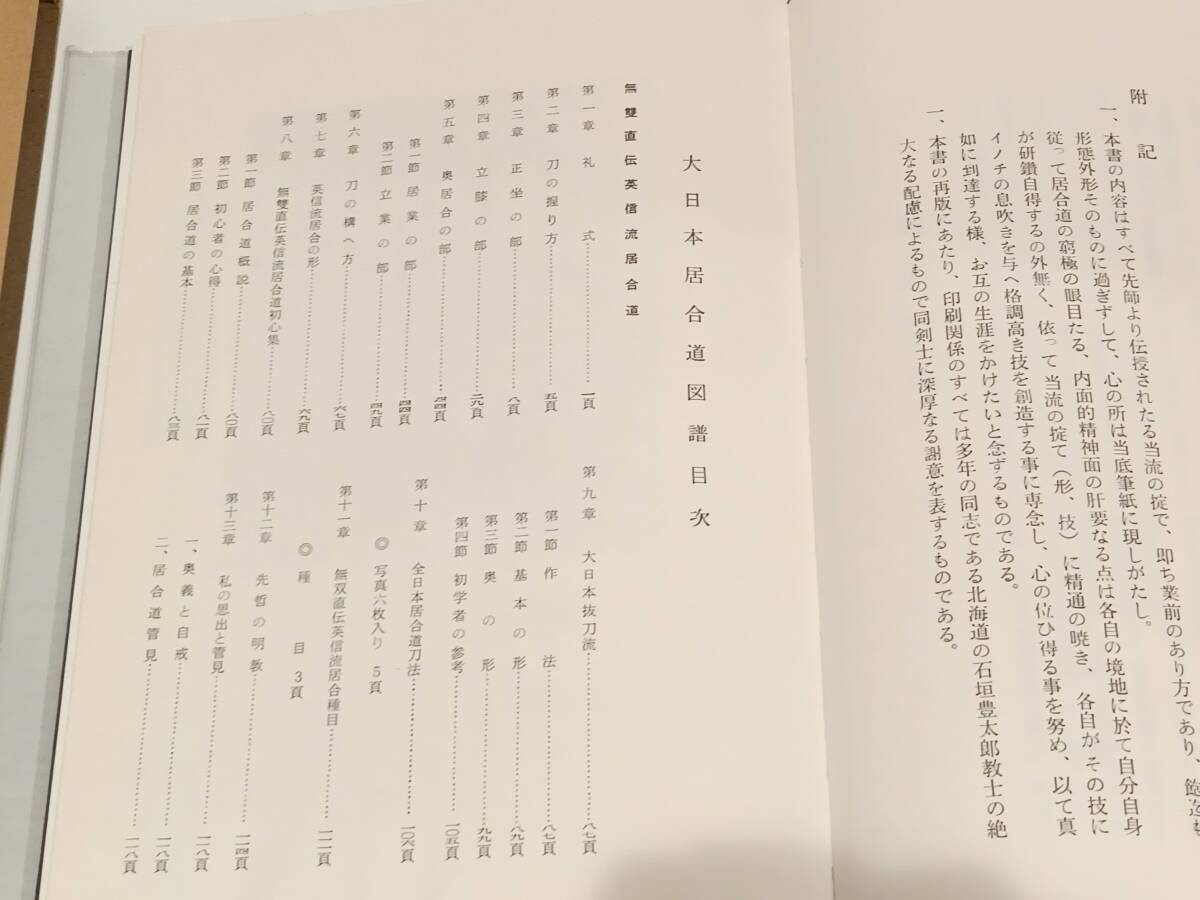 附記
一、本書の内容はすべて先師より伝授されたる当流の掟で、即ち業前のあり方であり、飽迄も
形態外形そのものに過ぎずして、心の所は当底筆紙に現しがたし。
従って居合道の窮極の眼目たる、内面的精神面の肝要なる点は各自の境地に於て自分自身
が研鑽自得するの外無く、依って当流の掟て（形、技）に精通の暁き、各自がその技に
イノチの息吹きを与へ格調高き技を創造する事に専念し、心の位ひ得る事を努め、以て真
如に到達する様、お互の生涯をかけたいと念ずるものである。
一、本書の再版にあたり、印刷関係のすべては多年の同志である北海道の石垣豊太郎教士の絶
大なる配慮によるもので同剣士に深厚なる謝意を表するものである。
大日本居合道図譜目次
無雙直伝英信流居合道
第一章 礼式……一頁
第二章 刀の握り方……五頁
第三章 正坐の部……八頁
第四章 立膝の部……二九頁
第五章 奥居合の部……四四頁
第一節 居業の部……四四頁
第二節 立業の部……四九頁
第六章 刀の構へ方……六七頁
第七章 英信流居合の形……六九頁
第八章 無雙直伝英信流居合道初心集……八〇頁
第一節 居合道概説……八〇頁
第二節 初心者の心得……八一頁
第三節 居合道の基本……八三頁
第九章 大日本抜刀流……八七頁
第一節 作法……八七頁
第二節 基本の形……八九頁
第三節 奥の形……九九頁
第四節 初学者の参考……一〇五頁
第十章 全日本居合道刀法……一〇六頁
◎写真六枚入り 5頁
第十一章 無双直伝英信流居合種目……一一一頁
◎種目 3頁
第十二章 先哲の明教……一一四頁
第十三章 私の思出と管見……一一八頁
一、奥義と自戒……一一八頁
二、居合道管見……一一八頁